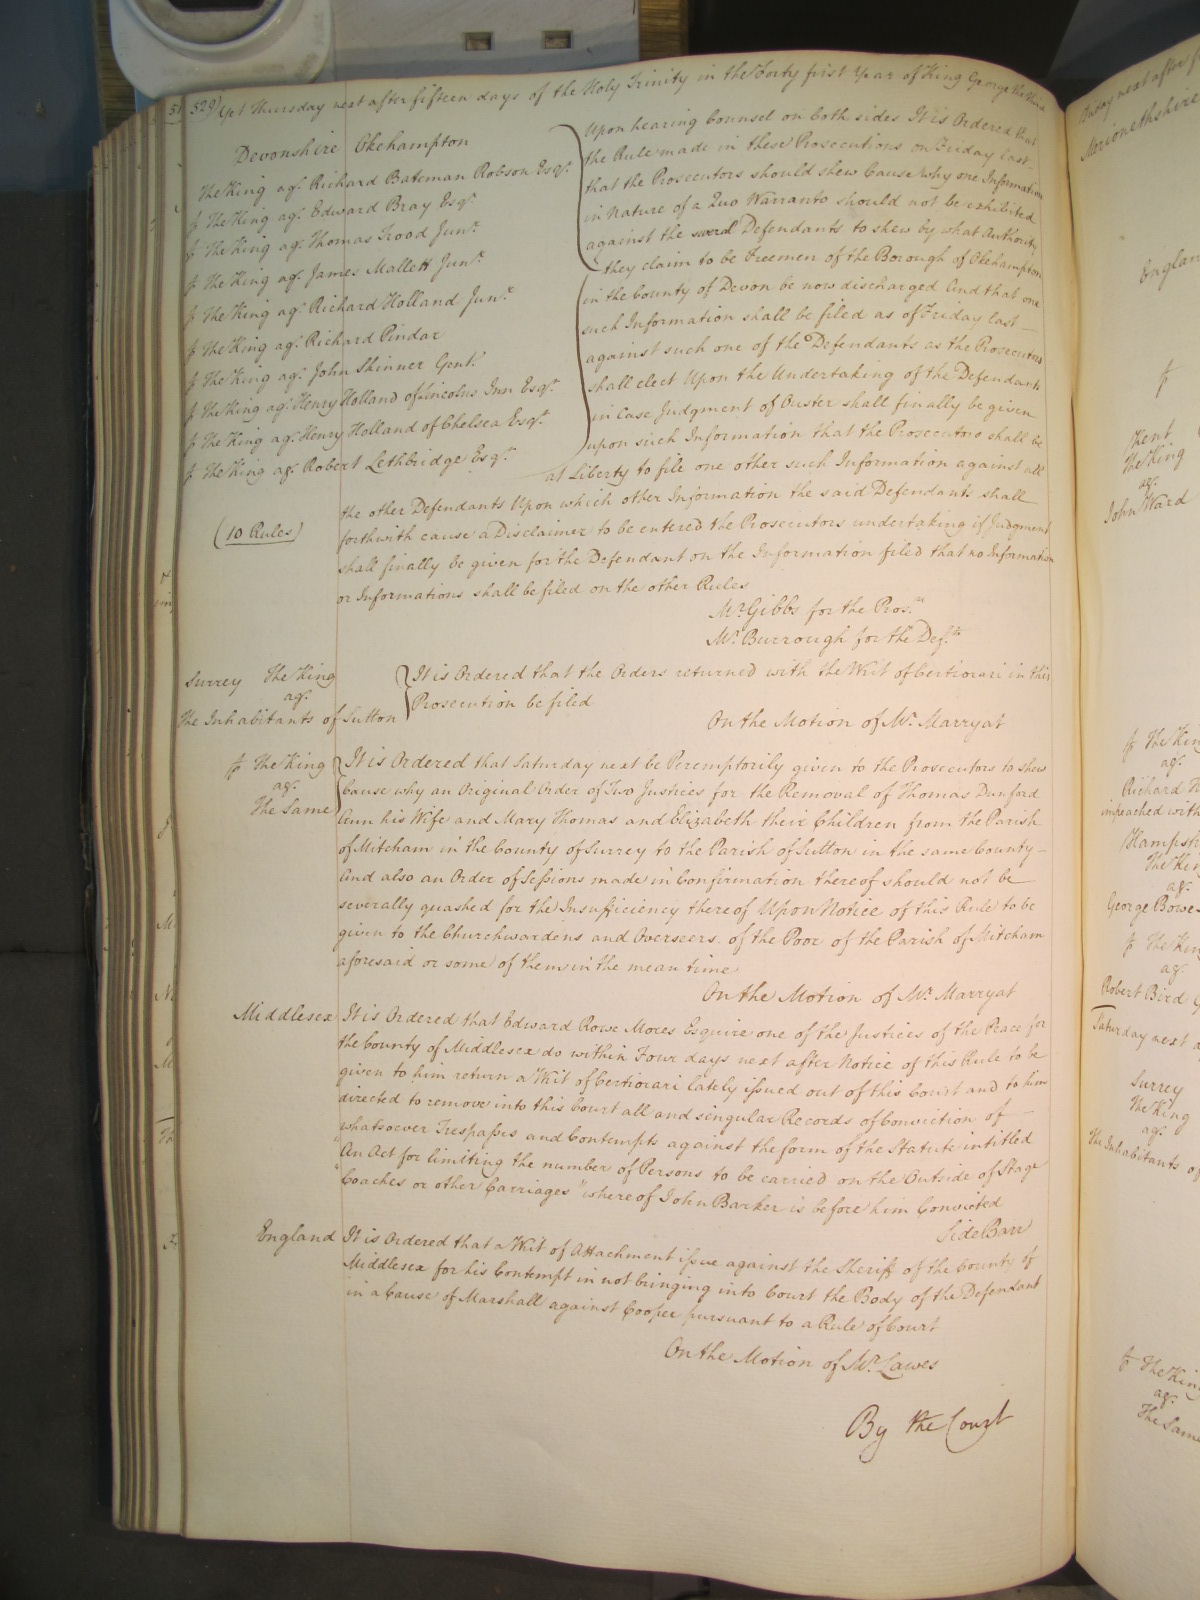 529) Yet Thursday next after fifteen days of the Holy Trinity in the Forty first Year of King George the third
Devonshire Okehampton
The King agt. Richard Bateman Robson Esqr.
The King agt. Edward Bray Esqr.
The King agt. Thomas Trood Junr.
The King agt. James Mallett Junr.
The King agt. Richard Holland Junr.
The King agt. Richard Pindar
The King agt. John Skinner Gent.
The King agt. Henry Holland of Lincolns Inn Esqr.
The King agt. Henry Holland of Chelsea Esqr.
The King agt. Robert Lethbridge Esqr.
(10 Rules)
Upon hearing Counsel on both sides It is Ordered that
the Rule made in these Prosecutions on Friday last
that the Prosecutors should shew Cause why one Information
in Nature of a Quo Warranto should not be exhibited
against the several Defendants to shew by what Authority
they claim to be Freemen of the Borough of Okehampton
in the County of Devon be now discharged And that one
such Information shall be filed as of Friday last
against such one of the Defendants as the Prosecutors
shall elect Upon the Undertaking of the Defendants
in Case Judgment of Ouster shall finally be given
upon such Information that the Prosecutors shall be
at Liberty to file one other such Information against all
the other Defendants Upon which other Information the said Defendants shall
forthwith cause a Disclaimer to be entered the Prosecutors undertaking if Judgment
shall finally be given for the Defendant on the Information filed that no Information
or Informations shall be filed on the other Rules
Mr. Gibbs for the Pros.rs
Mr. Burrough for the Def.ts
Surrey The King
agt.
The Inhabitants of Sutton
It is Ordered that the Orders returned with the Writ of Certiorari in this
Prosecution be filed
On the Motion of Mr. Marryat
The King
agt.
The Same
It is Ordered that Saturday next be Peremptorily given to the Prosecutors to shew
Cause why an Original Order of Two Justices for the Removal of Thomas Dunford
Ann his Wife and Mary Thomas and Elizabeth their Children from the Parish
of Mitcham in the County of Surrey to the Parish of Sutton in the same County
And also an Order of Sessions made in Confirmation thereof should not be
severally quashed for the Insufficiency thereof Upon Notice of this Rule to be
given to the Churchwardens and Overseers of the Poor of the Parish of Mitcham
aforesaid or some of them in the mean time
On the Motion of Mr. Marryat
Middlesex It is Ordered that Edward Rowe Mores Esquire one of the Justices of the Peace for
the County of Middlesex do within Four days next after Notice of this Rule to be
given to him return a Writ of Certiorari lately issued out of this Court and to him
directed to remove into this Court all and singular Records of Conviction of
whatsoever Trespasses and Contempts against the form of the Statute intitled
"An Act for limiting the number of Persons to be carried on the Outside of Stage
"Coaches or other Carriages" whereof John Barker is before him Convicted
Side Barr
England It is Ordered that a Writ of Attachment issue against the Sheriff of the County of
Middlesex for his Contempt in not bringing into Court the Body of the Defendant
in a Cause of Marshall against Cooper pursuant to a Rule of Court
On the Motion of Mr. Lawes
By the Court
Friday next after
Merionethshire
England
Kent
The King
agt.
John Ward
The King
agt.
Richard
impeached with
Hampsh
The King
agt.
George Bowe
The King
agt.
Robert Bird
Saturday next
Surrey
The King
agt.
The Inhabitants of
The King
agt.
The Same